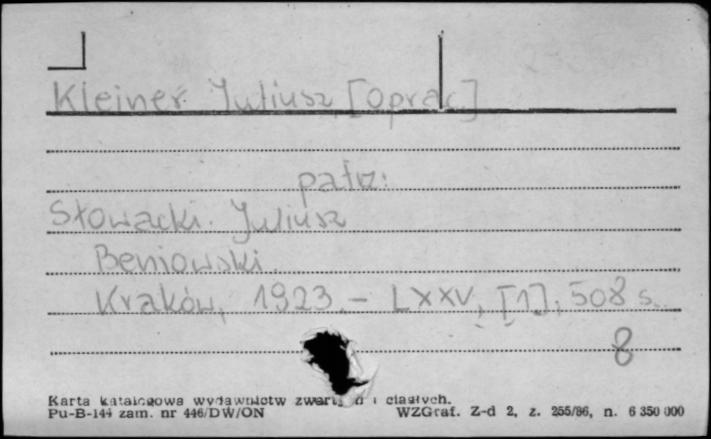 Kleiner Juliusz [oprac.]
patrz:
Słowacki Juliusz
Beniowski.
Kraków, 1923. – LXXV, [1], 508 s.
8
Karta katalogowa wydawnictw i ciągłych.
Pu-B-144 zam. nr 446/DW/ON WZGraf. Z-d 2, z. 255/86, n. 6 350 000